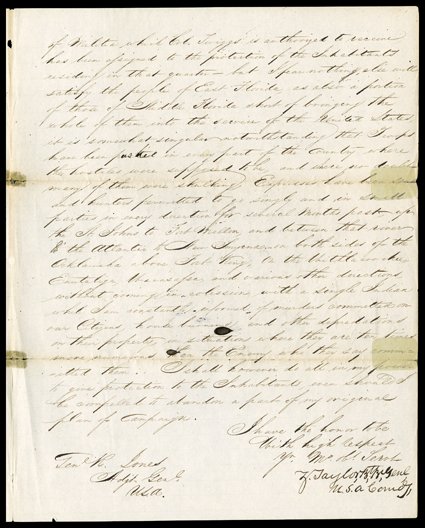 of Militia, which Col. Twiggs is authorized to receive
has been assigned to the protection of the Inhabitants
residing in that quarter - but I fear nothing else will
satisfy the people of East Florida as also a portion
of those of Middle Florida short of bringing the
whole of them into the service of the United States
it is somewhat singular notwithstanding that Troops
have been pushed in every part of the Country where
the hostiles were supposed to be, and where no doubt
many of them were skulking Expresses have been
and parties permitted to go singly and in small
parties in every direction for several Months past up
the St Johns to Fort Mellon and between that river
& the Atlantic to New Smyrna on both sides of the
Ocklawaha above Fort King, to the Withlacoochee
and various other directions
without coming in collision with a single Indian
whilst I am constantly informed of murders committed on
our Citizens, house burning and other depredations
on their property, in situations where they are ten times
more numerous than the Enemy who they say committed
them. I shall however do all in my power
to give protection to the Inhabitants even should I
be compelled to abandon a part of my original
plan of Campaign.
I have the honor to be
With high Respect
Yr. Mo. Ob. Servt
Z. Taylor Bt. Br. Genl
U.S.A. Comdg
Genl. R. Jones
Adgt. Genl.
U.S.A.